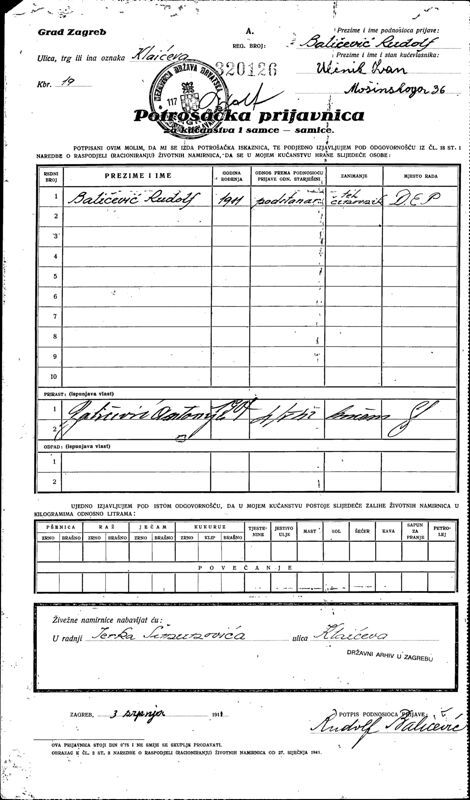 Grad Zagreb
Ulica, trg ili ina oznaka Klaićeva
Kbr. 19
A.
REG. BROJ:
320126
Prezime i ime podnosioca prijave:
Baličević Rudolf
Prezime i ime i stan kućevlasnika:
Učenik Ivan
Mošinskoga 36
NEZAVISNA DRŽAVA HRVATSKA
117
Potrošačka prijavnica
za kućanstva i samce — samice.
POTPISANI OVIM MOLIM, DA MI SE IZDA POTROŠAČKA ISKAZNICA, TE PODJEDNO IZJAVLJUJEM POD ODGOVORNOŠĆU IZ ČL. 18 ST. 1
NAREDBE O RASPODJELI (RACIONIRANJU) ŽIVOTNIH NAMIRNICA, DA SE U MOJEM KUĆANSTVU HRANE SLIJEDEĆE OSOBE:
REDNI BROJ PREZIME I IME GODINA ROĐENJA ODNOS PREMA PODNOSIOCU PRIJAVE ODN. STARJEŠINI ZANIMANJE MJESTO RADA
1 Baličević Rudolf 1911 podstanar D.E.P
2
3
4
5
6
7
8
9
10
PRIRAST: (ispunjava vlast)
1
2
ODPAD: (ispunjava vlast)
1
2
UJEDNO IZJAVLJUJEM POD ISTOM ODGOVORNOŠĆU, DA U MOJEM KUĆANSTVU POSTOJE SLIJEDEĆE ZALIHE ŽIVOTNIH NAMIRNICA U
KILOGRAMIMA ODNOSNO LITRAMA:
PŠENICA RAŽ JEČAM KUKURUZ TJESTENINE JESTIVO ULJE MAST SOL ŠEĆER KAVA SAPUN ZA PRANJE PETROLEJ
ZRNO BRAŠNO ZRNO BRAŠNO ZRNO BRAŠNO ZRNO KLIP BRAŠNO
POVEĆANJE
Živežne namirnice nabavljat ću:
U radnji Jerka Šimunovića ulica Klaićeva
DRŽAVNI ARHIV U ZAGREBU
ZAGREB, 3 srpnja 1941
POTPIS PODNOSIOCA PRIJAVE:
Rudolf Baličević
OVA PRIJAVNICA STOJI DIN 0'75 I NE SMIJE SE SKUPLJE PRODAVATI.
OBRAZAC K ČL. 2 ST. 3 NAREDBE O RASPODJELI (RACIONIRANJU) ŽIVOTNIH NAMIRNICA OD 27. SIJEČNJA 1941.